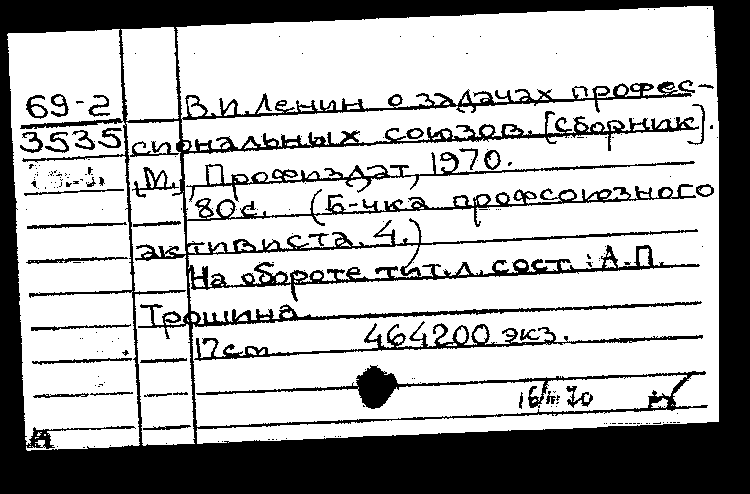 69-2 В.И.Ленин о задачах профес-
3535 сиональных союзов. [Сборник].
[М.], Профиздат, 1970.
80 с. (Б-чка профсоюзного
активиста. 4.)
На обороте тит.л. сост.: А.П.
Трошина.
17 cm 464200 экз.
16/III 70